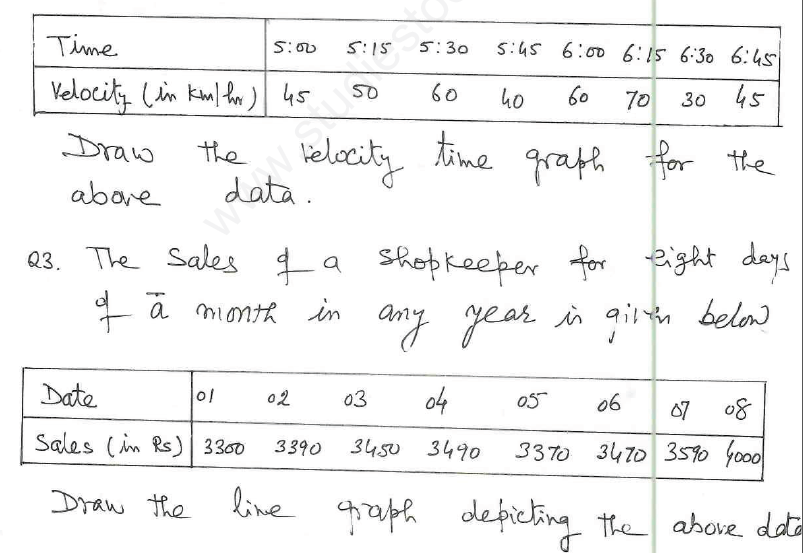 Time 5:00 5:15 5:30 5:45 6:00 6:15 6:30 6:45
Velocity (in km/hr) 45 50 60 40 60 70 30 45
Draw the velocity time graph for the
above data.
Q3. The Sales of a shopkeeper for eight days
of a month in any year is given below
Date 01 02 03 04 05 06 07 08
Sales (in Rs) 3300 3390 3450 3490 3370 3470 3590 4000
Draw the line graph depicting the above data